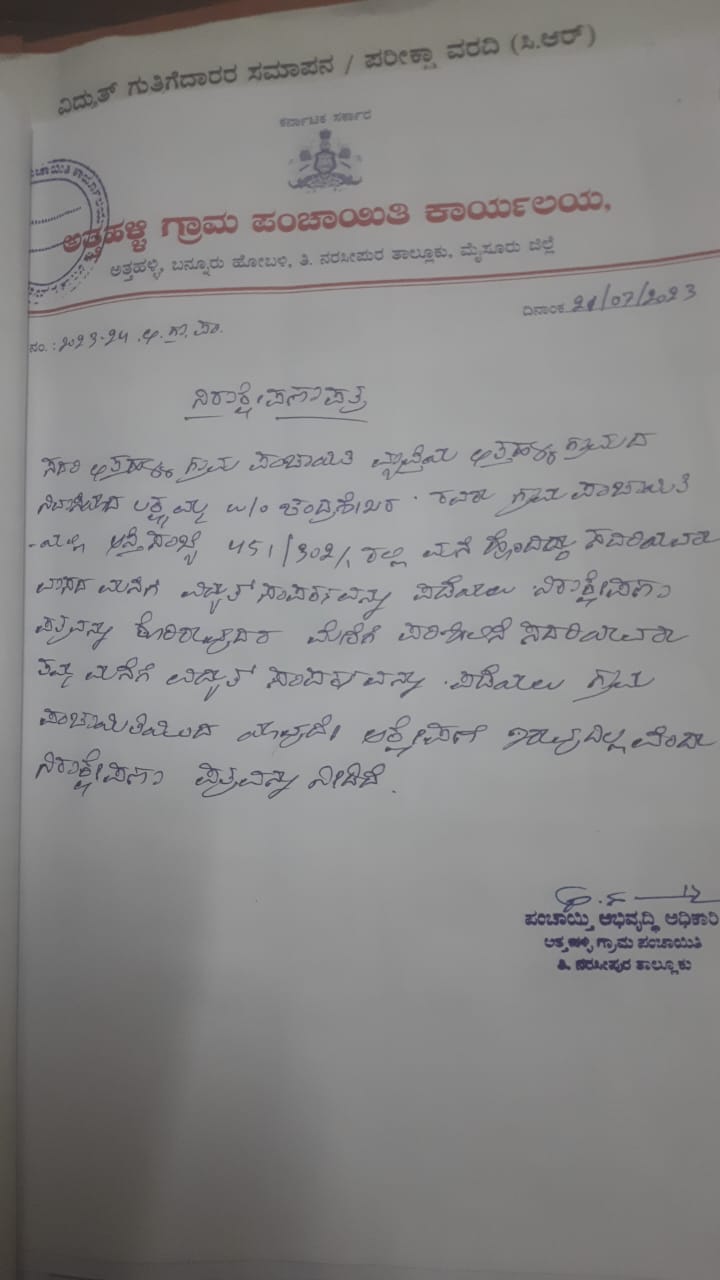 ವಿದ್ಯುತ್ ಗುತ್ತಿಗೆದಾರರ ಸಮಾಪನ / ಪರೀಕ್ಷಾ ವರದಿ (ಸಿ.ಆರ್)
ಕರ್ನಾಟಕ ಸರ್ಕಾರ
ಅತ್ತಹಳ್ಳಿ ಗ್ರಾಮ ಪಂಚಾಯಿತಿ ಕಾರ್ಯಲಯ,
ಅತ್ತಹಳ್ಳಿ, ಬನ್ನೂರು ಹೋಬಳಿ, ತಿ. ನರಸೀಪುರ ತಾಲ್ಲೂಕು, ಮೈಸೂರು ಜಿಲ್ಲೆ
ದಿನಾಂಕ 21/07/2023
ನಂ. : 2023-24 .ಅ.ಗ್ರಾ.ಪಂ.
ನಿರಾಕ್ಷೇಪಣಾ ಪತ್ರ
ಸದರಿ ಅತ್ತಹಳ್ಳಿ ಗ್ರಾಮ ಪಂಚಾಯಿತಿ ವ್ಯಾಪ್ತಿಯ ಅತ್ತಹಳ್ಳಿ ಗ್ರಾಮದ
ನಿವಾಸಿಯಾದ ಲಕ್ಷ್ಮಮ್ಮ w/o ಚಂದ್ರಶೇಖರ ಗ್ರಾಮ ಪಂಚಾಯಿತಿ
-ಯಲ್ಲಿ ಆಸ್ತಿ ಸಂಖ್ಯೆ 451/302/1 ರಲ್ಲಿ ಮನೆ ಹೊಂದಿದ್ದು ಸದರಿಯವರ
ವಾಸದ ಮನೆಗೆ ವಿದ್ಯುತ್ ಸಂಪರ್ಕವನ್ನು ಪಡೆಯಲು ನಿರಾಕ್ಷೇಪಣಾ
ಪತ್ರವನ್ನು ಕೋರಿರುವುದರ ಮೇರೆಗೆ ಪರಿಶೀಲಿಸಿ ಸದರಿಯವರ
ತಮ್ಮ ಮನೆಗೆ ವಿದ್ಯುತ್ ಸಂಪರ್ಕವನ್ನು ಪಡೆಯಲು ಗ್ರಾಮ
ಪಂಚಾಯಿತಿಯಿಂದ ಯಾವುದೇ ಆಕ್ಷೇಪಣೆ ಇರುವುದಿಲ್ಲವೆಂದು
ನಿರಾಕ್ಷೇಪಣಾ ಪತ್ರವನ್ನು ನೀಡಿದೆ.
ಪಂಚಾಯ್ತಿ ಅಭಿವೃದ್ಧಿ ಅಧಿಕಾರಿ
ಅತ್ತಹಳ್ಳಿ ಗ್ರಾಮ ಪಂಚಾಯಿತಿ
ತಿ. ನರಸೀಪುರ ತಾಲ್ಲೂಕು